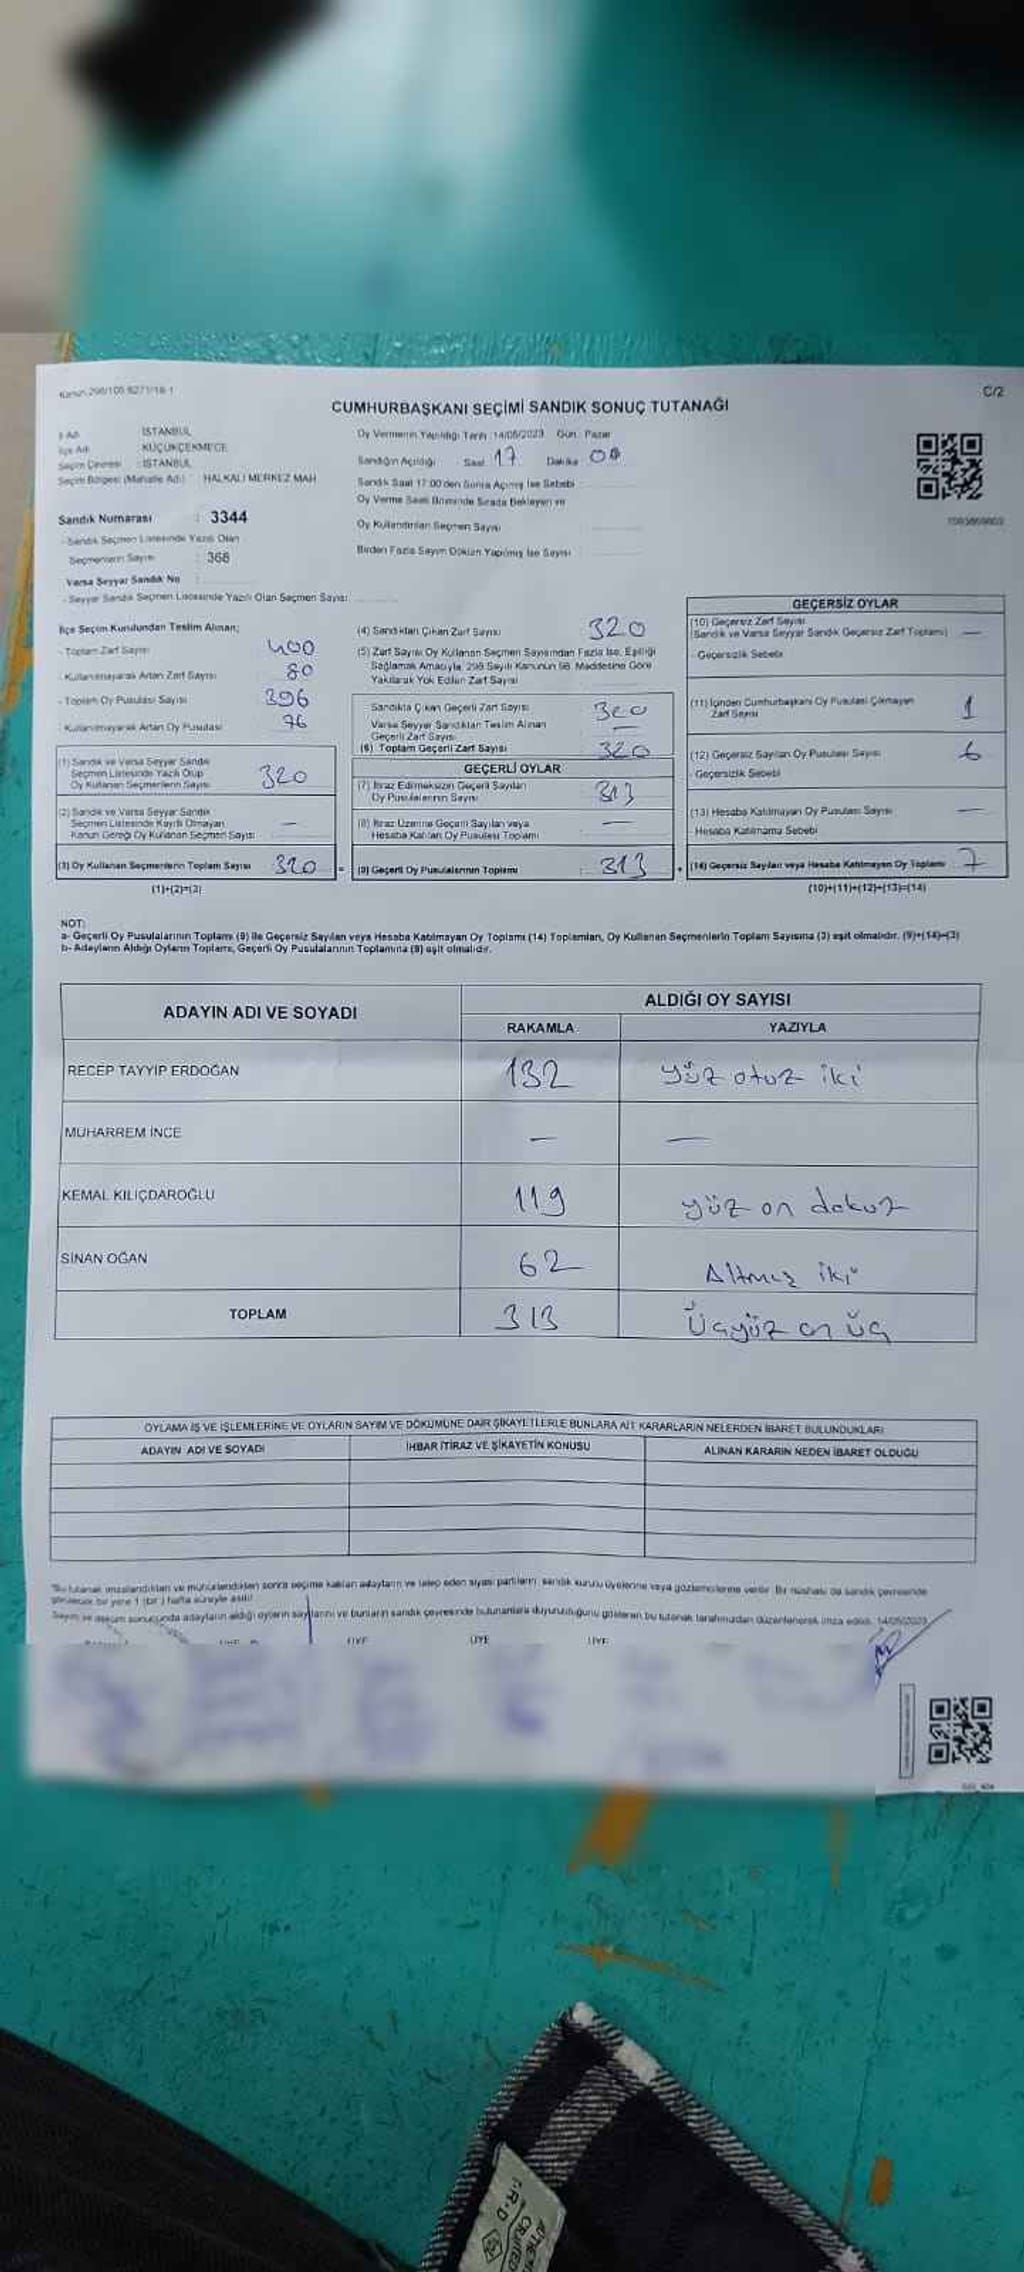 Kanun 298/105 6271/18-1
C/2
CUMHURBAŞKANI SEÇİMİ SANDIK SONUÇ TUTANAĞI
İl Adı : İSTANBUL
İlçe Adı : KÜÇÜKÇEKMECE
Seçim Çevresi : İSTANBUL
Seçim Bölgesi (Mahalle Adı) : HALKALI MERKEZ MAH
Sandık Numarası : 3344
- Sandık Seçmen Listesinde Yazılı Olan
Seçmenlerin Sayısı : 368
Varsa Seyyar Sandık No :
- Seyyar Sandık Seçmen Listesinde Yazılı Olan Seçmen Sayısı:
Oy Vermenin Yapıldığı Tarih :14/05/2023 Gün: Pazar
Sandığın Açıldığı Saat 17 Dakika 00
Sandık Saat 17:00'den Sonra Açılmış İse Sebebi
Oy Verme Saati Bitiminde Sırada Bekleyen ve
Oy Kullandırılan Seçmen Sayısı
Birden Fazla Sayım Döküm Yapılmış İse Sayısı
İlçe Seçim Kurulundan Teslim Alınan;
- Toplam Zarf Sayısı 400
- Kullanılmayarak Artan Zarf Sayısı 80
- Toplam Oy Pusulası Sayısı 396
- Kullanılmayarak Artan Oy Pusulası 76
(1) Sandık ve Varsa Seyyar Sandık
Seçmen Listesinde Yazılı Olup
Oy Kullanan Seçmenlerin Sayısı 320
(2) Sandık ve Varsa Seyyar Sandık
Seçmen Listesinde Kayıtlı Olmayan
Kanun Gereği Oy Kullanan Seçmen Sayısı : —
(3) Oy Kullanan Seçmenlerin Toplam Sayısı 320 =
(1)+(2)=(3)
(4) Sandıktan Çıkan Zarf Sayısı : 320
(5) Zarf Sayısı Oy Kullanan Seçmen Sayısından Fazla İse, Eşitliği
Sağlamak Amacıyla, 298 Sayılı Kanunun 98. Maddesine Göre
Yakılarak Yok Edilen Zarf Sayısı : —
Sandıkta Çıkan Geçerli Zarf Sayısı : 320
Varsa Seyyar Sandıktan Teslim Alınan
Geçerli Zarf Sayısı : —
(6) Toplam Geçerli Zarf Sayısı : 320
GEÇERLİ OYLAR
(7) İtiraz Edilmeksizin Geçerli Sayılan
Oy Pusulalarının Sayısı : 313
(8) İtiraz Üzerine Geçerli Sayılan veya
Hesaba Katılan Oy Pusulası Toplamı : —
(9) Geçerli Oy Pusulalarının Toplamı : 313 +
GEÇERSİZ OYLAR
(10) Geçersiz Zarf Sayısı
(Sandık ve Varsa Seyyar Sandık Geçersiz Zarf Toplamı) —
- Geçersizlik Sebebi
(11) İçinden Cumhurbaşkanı Oy Pusulası Çıkmayan
Zarf Sayısı 1
(12) Geçersiz Sayılan Oy Pusulası Sayısı 6
- Geçersizlik Sebebi
(13) Hesaba Katılmayan Oy Pusulası Sayısı —
- Hesaba Katılmama Sebebi
(14) Geçersiz Sayılan veya Hesaba Katılmayan Oy Toplamı 7
(10)+(11)+(12)+(13)=(14)
NOT:
a- Geçerli Oy Pusulalarının Toplamı (9) ile Geçersiz Sayılan veya Hesaba Katılmayan Oy Toplamı (14) Toplamları, Oy Kullanan Seçmenlerin Toplam Sayısına (3) eşit olmalıdır. (9)+(14)=(3)
b- Adayların Aldığı Oyların Toplamı, Geçerli Oy Pusulalarının Toplamına (9) eşit olmalıdır.
ADAYIN ADI VE SOYADI
ALDIĞI OY SAYISI
RAKAMLA YAZIYLA
RECEP TAYYİP ERDOĞAN 132 yüz otuz iki
MUHARREM İNCE — —
KEMAL KILIÇDAROĞLU 119 yüz on dokuz
SİNAN OĞAN 62 Altmış iki
TOPLAM 313 Üçyüz on üç
OYLAMA İŞ VE İŞLEMLERİNE VE OYLARIN SAYIM VE DÖKÜMÜNE DAİR ŞİKAYETLERLE BUNLARA AİT KARARLARIN NELERDEN İBARET BULUNDUKLARI
ADAYIN ADI VE SOYADI İHBAR İTİRAZ VE ŞİKAYETİN KONUSU ALINAN KARARIN NEDEN İBARET OLDUĞU
"Bu tutanak imzalandıktan ve mühürlendikten sonra seçime katılan adayların ve talep eden siyasi partilerin, sandık kurulu üyelerine veya gözlemcilerine verilir. Bir nüshası da sandık çevresinde
görülecek bir yere 1 (bir) hafta süreyle asılır.
Sayım ve döküm sonucunda adayların aldığı oyların sayılarını ve bunların sandık çevresinde bulunanlara duyurulduğunu gösteren bu tutanak tarafımızdan düzenlenerek imza edildi. 14/05/2023
ÜYE ÜYE ÜYE